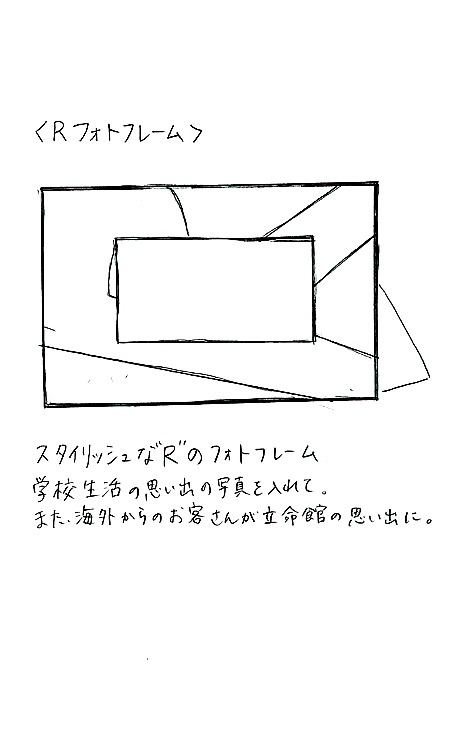 〈Rフォトフレーム〉
スタイリッシュな"R"のフォトフレーム
学校生活の思い出の写真を入れて。
また、海外からのお客さんが立命館の思い出に。